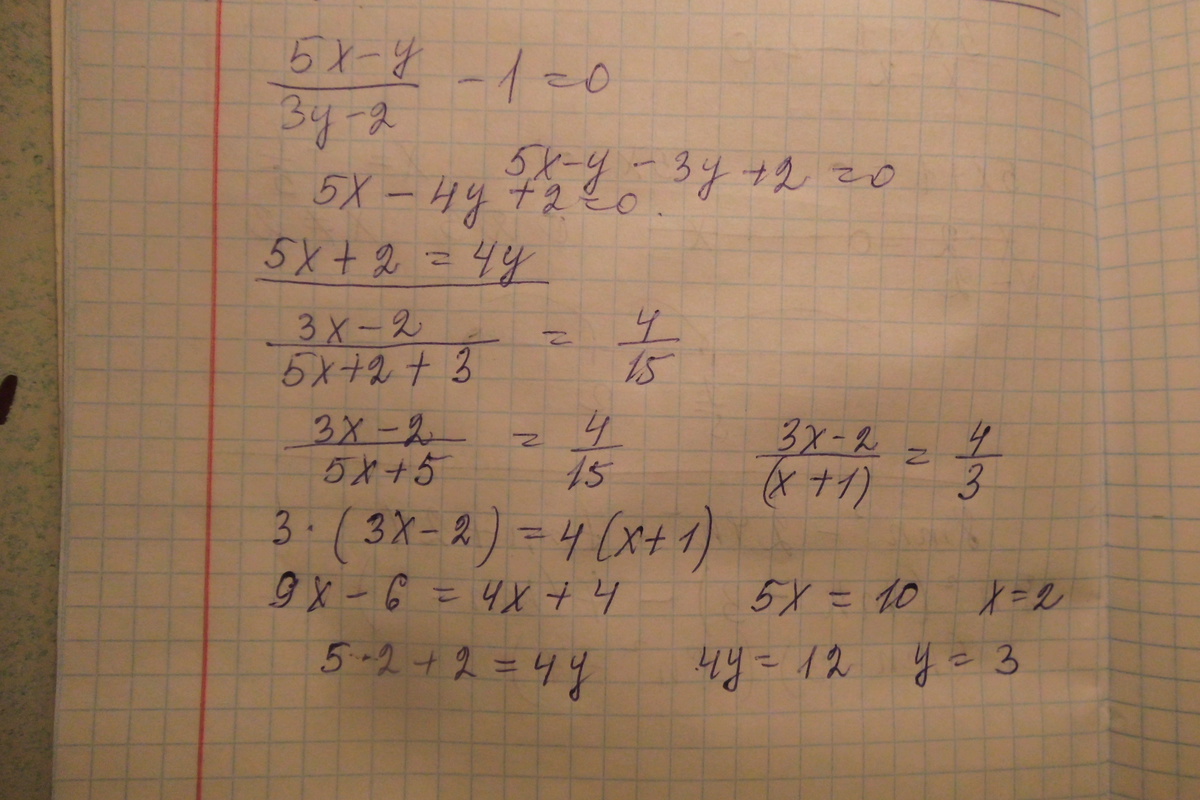 (5x-y)/(3y-2) - 1 = 0
5x-y - 3y + 2 = 0
5x - 4y + 2 = 0.
5x + 2 = 4y
(3x-2)/(5x+2+3) = 4/15
(3x-2)/(5x+5) = 4/15 (3x-2)/((x+1)) = 4/3
3·(3x-2) = 4(x+1)
9x - 6 = 4x + 4 5x = 10 x=2
5·2 + 2 = 4y 4y = 12 y = 3